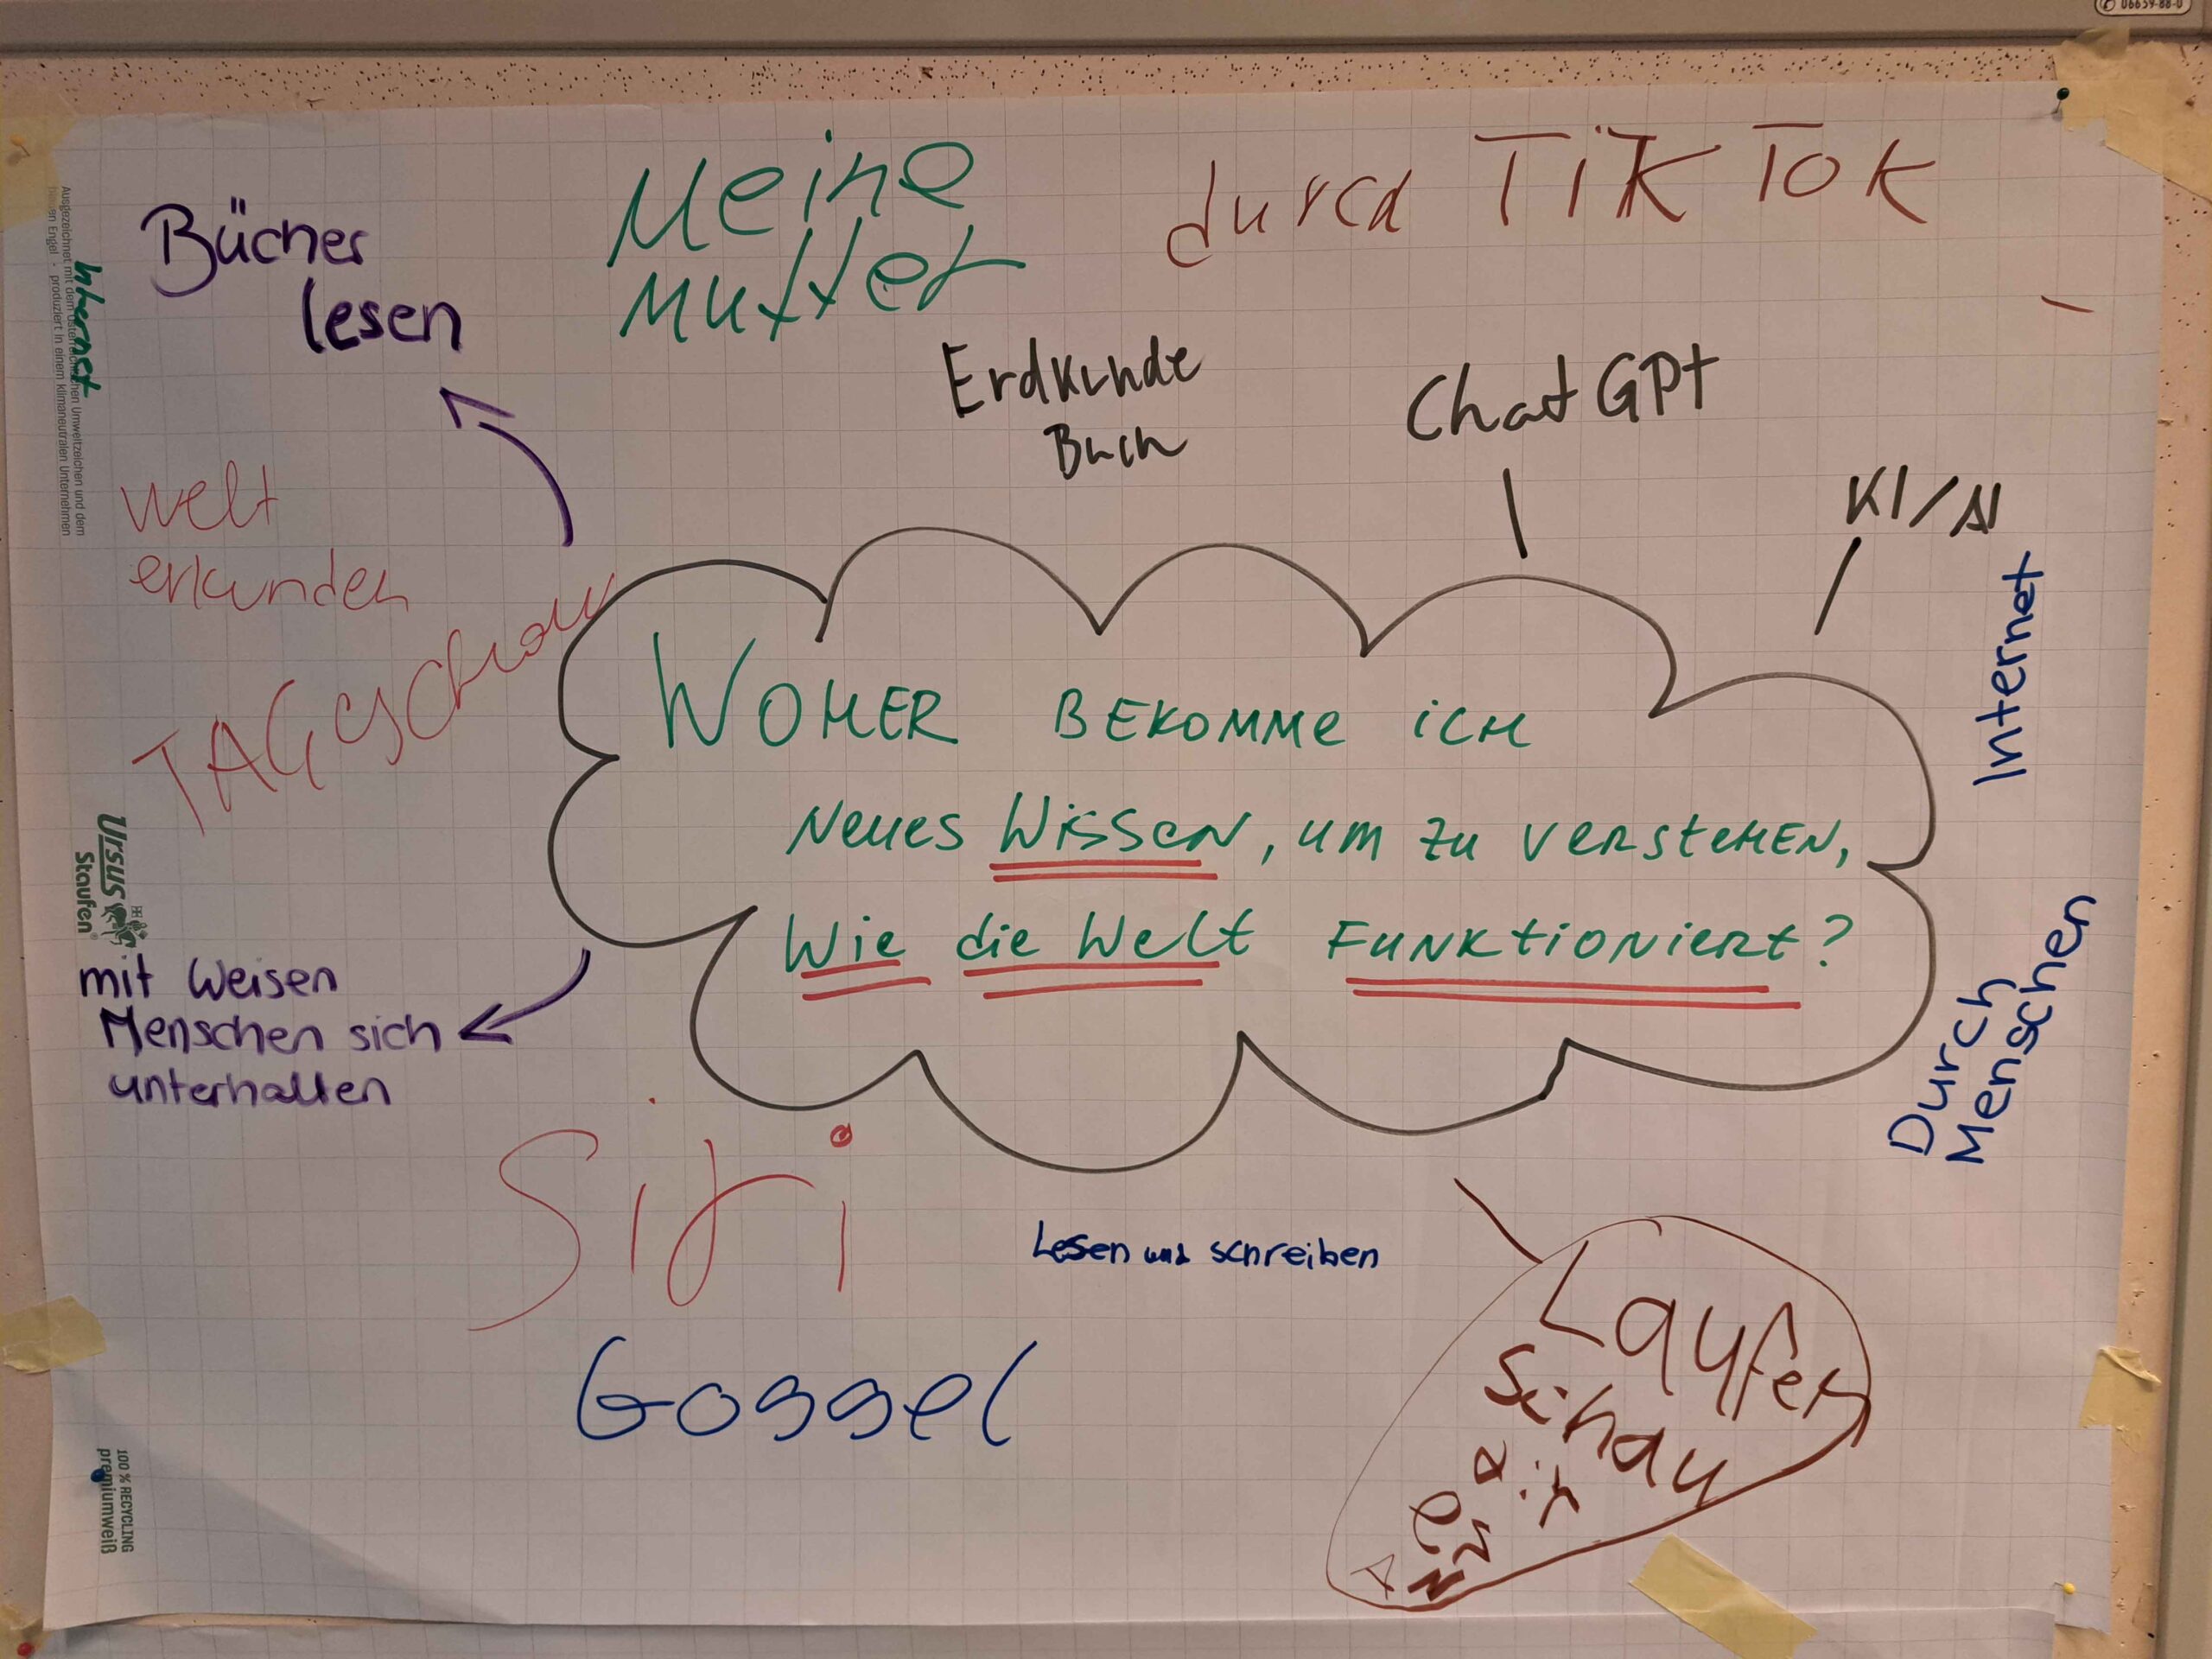 06659-88-0
Ausgezeichnet mit dem Österreichischen Umweltzeichen und dem
Blauen Engel · produziert in einem klimaneutralen Unternehmen
Internet
Bücher
lesen
Meine
Mutter
durch TikTok
Erdkunde
Buch
Chat GPt
KI/AI
Welt
erkunden
TAGESschau
WOHER BEKOMME ICH
NEUES WISSEN, UM ZU VERSTEHEN,
WIE die WELT FUNKTIONIERT?
Internet
Durch
Menschen
Ursus
Staufen®
mit Weisen
Menschen sich
unterhalten
Siri
Lesen und schreiben
Goggel
Laufen
Schau
dir
100 % RECYCLING
premiumweiß